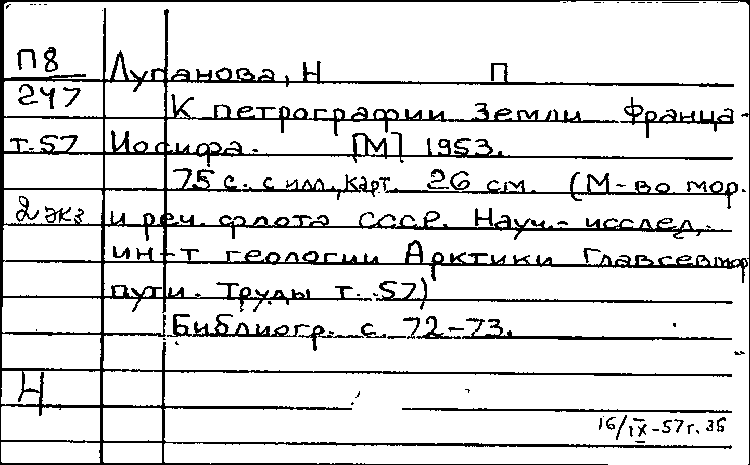 П8 Лупанова, Н П
247 К петрографии Земли Франца-
т.57 Иосифа. [М] 1953.
75 с. с илл., карт. 26 см. (М-во мор.
2 экз и реч. флота СССР. Науч.-исслед,-
ин-т геологии Арктики Главсевмор
пути. Труды т. 57)
Библиогр. с. 72-73.
Н
16/IX-57г. 35